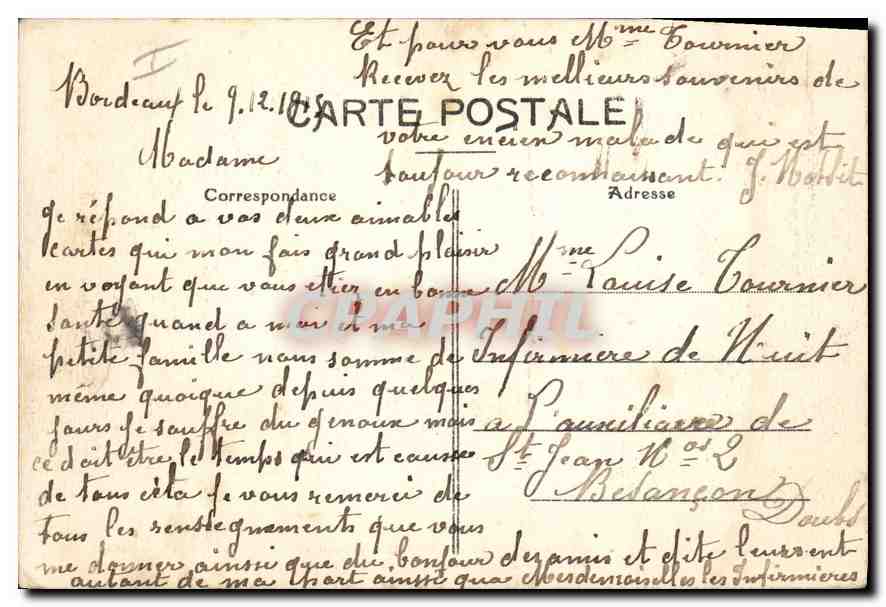 Bordeaux le 9.12.1915
CARTE POSTALE
Madame
Correspondance
Je répond a vos deux aimables
cartes qui mon fais grand plaisir
en voyant que vous etier en bonne
santé quand a moi et ma
petite famille nous somme de
même quoique depuis quelques
jours je souffre du genoux mais
ce doit être le temps qui est cause
de tous cela je vous remerci de
tous les renseegnements que vous
me donner ainsie que du bonjour des amis et dite leursent
autant de ma part ainsie qua Mesdemoiselles les Infirmières
Et pour vous Mme Tournier
Recevez les mellieurs souvenirs de
votre encien malade qui est
toujour reconnaissant. J.
Adresse
Mme Louise Tournier
Infirmière de Nuit
a L'auxiliaire de
St Jean Nos 2
Besançon
Doubs
CPAPHIL